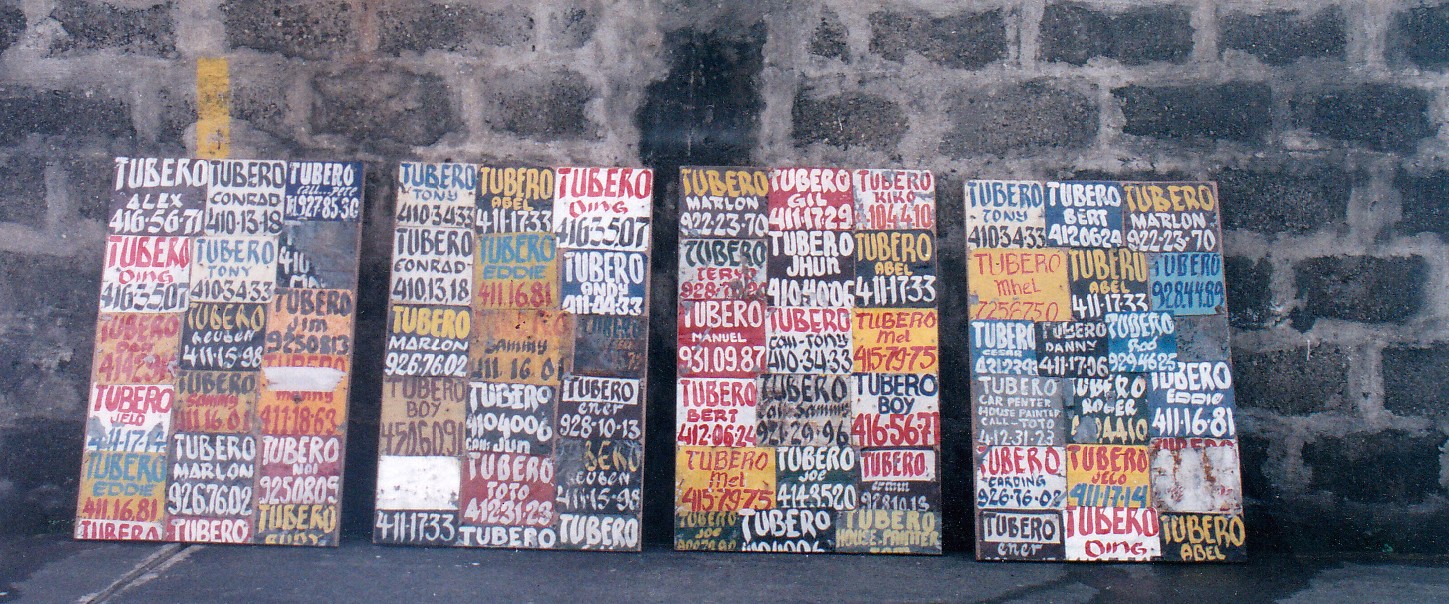 TUBERO
ALEX
416-56-71
TUBERO
CONRAD
410-13-18
TUBERO
TUBERO
Oing
416.35.07
TUBERO
TONY
410.34.33
410
TUBERO
TUBERO
REUBEN
411-15-98
TUBERO
Jim
9250813
TUBERO
JELO
411-17-14
TUBERO
Sammy
411 16 01
TUBERO
411-18-63
TUBERO
EDDIE
411.16.81
TUBERO
MARLON
926.76.02
TUBERO
NOI
9250805
TUBERO
TUBERO
TUBERO
TUBERO
TONY
410.34.33
TUBERO
ABEL
4.11-17.33
TUBERO
Oing
416.35.07
TUBERO
CONRAD
410.13.18
TUBERO
EDDIE
411.16.81
TUBERO
ANDY
411-44-33
TUBERO
MARLON
926.76.02
TUBERO
Sammy
411 16 01
TUBERO
TUBERO
BOY
TUBERO
4104006
Call: Jun
TUBERO
ener
928-10-13
TUBERO
TOTO
4123123
REUBEN
411-15-98
411-17.33
TUBERO
TUBERO
TUBERO
MARLON
922-23-70
TUBERO
GIL
411-17-29
TUBERO
KIKO
TUBERO
TUBERO
JHUN
410-4006
TUBERO
ABEL
4.11-17.33
TUBERO
MANUEL
931.09.87
TUBERO
Call-TONY
410-34-33
TUBERO
Mel
415-79-75
TUBERO
BERT
412-06-24
TUBERO
Call-Sammy
921-29-96
TUBERO
BOY
416-56-71
TUBERO
Mel
415-79-75
TUBERO
JOE
414-85-20
TUBERO
TUBERO
JOE
TUBERO
4104006
TUBERO
HOUSE.PAINTER
TUBERO
TONY
410.34.33
TUBERO
BERT
4120624
TUBERO
MARLON
922-23-70
TUBERO
Mhel
7256750
TUBERO
ABEL
4.11-17.33
TUBERO
928.44.89
TUBERO
CESAR
TUBERO
DANNY
411-17-06
TUBERO
ROD
929.46.25
TUBERO
CAR PENTER
HOUSE PAINTER
CALL-TOTO
4-12-31-23
TUBERO
ROGER
TUBERO
EDDIE
411-16-81
TUBERO
CARDING
926-76-02
TUBERO
JELO
411-17-14
TUBERO
ener
TUBERO
Oing
TUBERO
ABEL